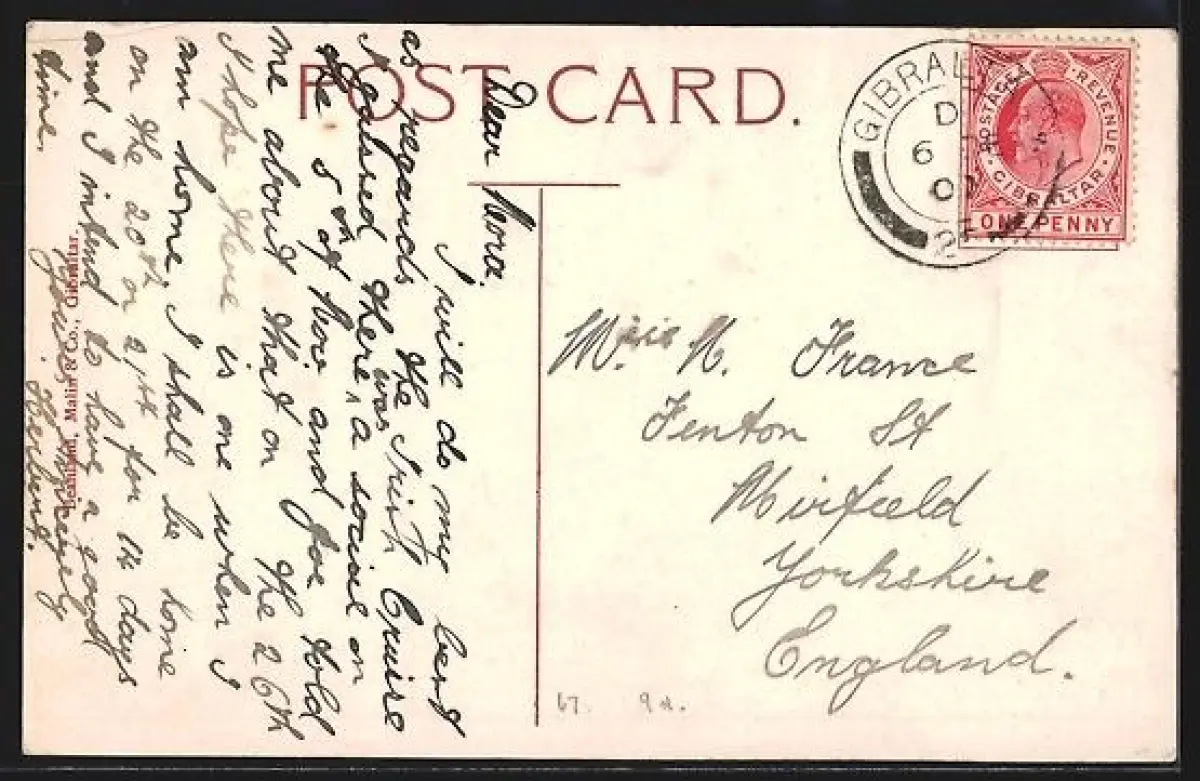 POST CARD.
Dear Nora.
I will do my best
as regards the Irish Cruise
I gassed there was a social on
the 5th of Nov and Joe told
me about that on the 26th
I hope there is one when I
am home, I shall be home
on the 20th or 21st for 14 days
and I intend to have a good
time.
Yours Sincerely
Herbert.
Beanland, Malin & Co., Gibraltar
GIBRALTAR
POSTAGE & REVENUE
GIBRALTAR
ONE PENNY
Miss N. France
Fenton St
Mirfield
Yorkshire
England.
67. 9d.